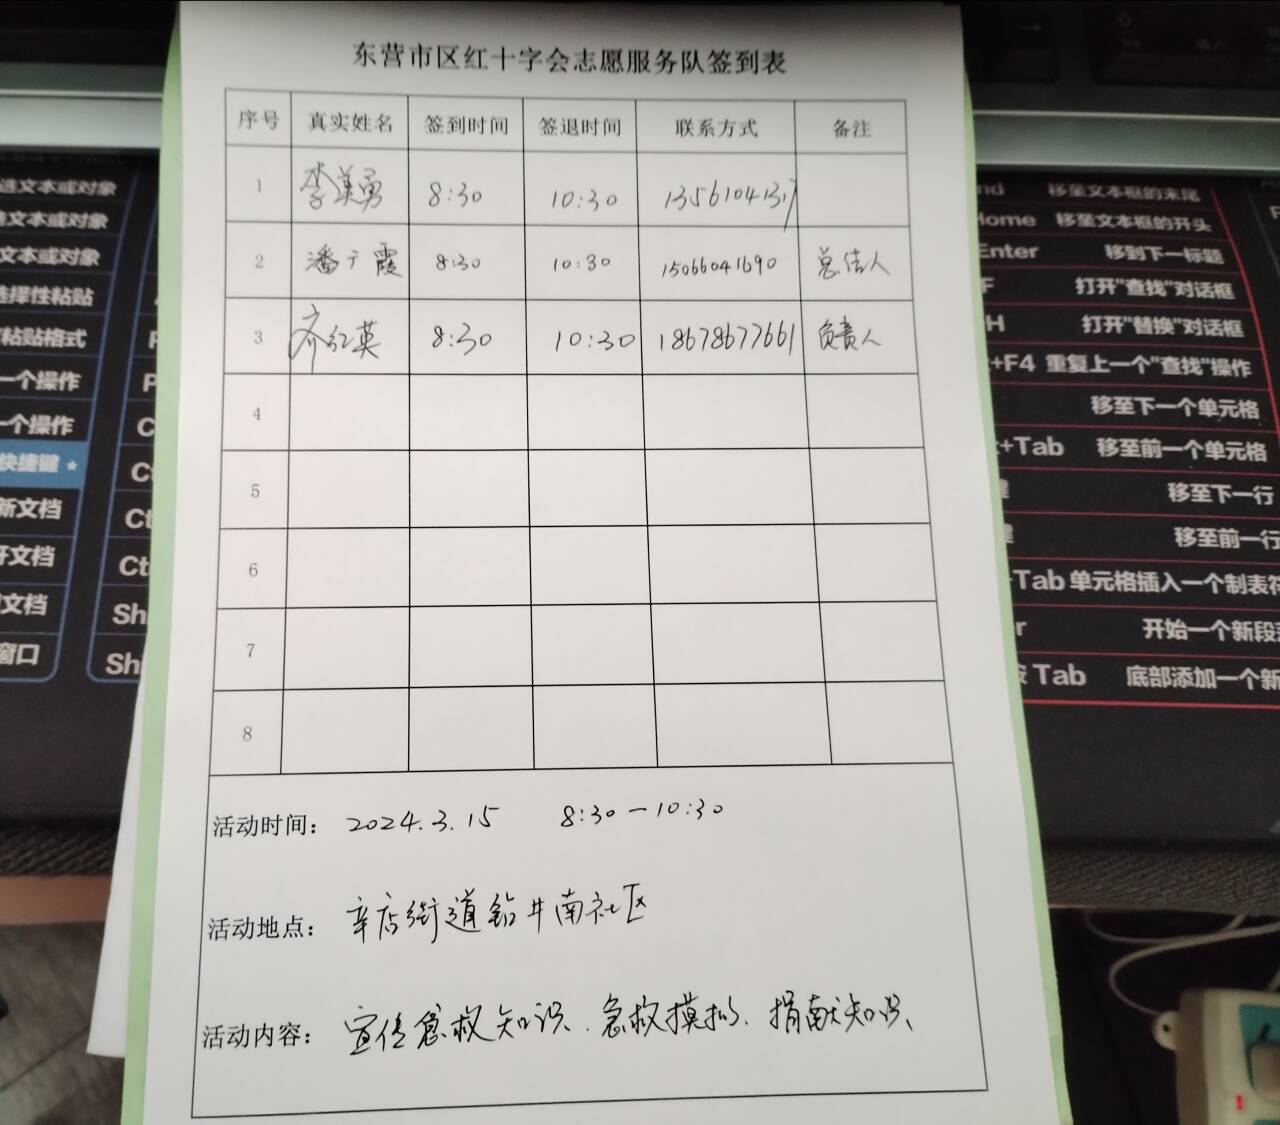 东营市区红十字会志愿服务队签到表
序号 真实姓名 签到时间 签退时间 联系方式 备注
1 李美勇 8:30 10:30
2 潘于霞 8:30 10:30 15066041690 总结人
3 齐红英 8:30 10:30 18678677661 负责人
4
5
6
7
8
活动时间： 2024.3.15 8:30—10:30
活动地点： 辛店街道钻井南社区
活动内容： 宣传急救知识、急救摸拟、捐献知识、
选文本或对象
文本或对象
文本或对象
选择性粘贴
粘贴格式
一个操作
一个操作
快捷键 ★
新文档
开文档
文档
窗口
Sh
nd 移至文本框的末尾
Home 移至文本框的开头
Enter 移到下一标题
F 打开"查找"对话框
H 打开"替换"对话框
+F4 重复上一个"查找"操作
移至下一个单元格
+Tab 移至前一个单元格
移至下一行
移至前一行
+Tab 单元格插入一个制表符
开始一个新段
Tab 底部添加一个新